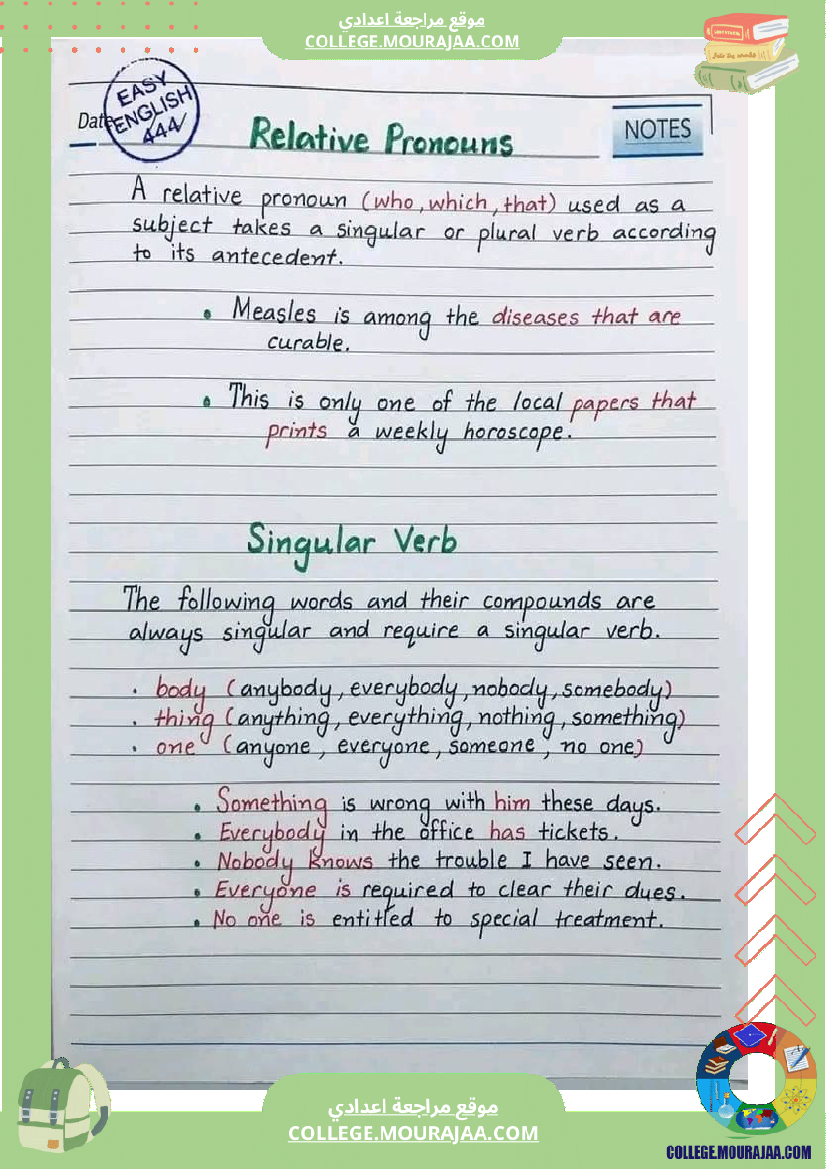 موقع مراجعة اعدادي
COLLEGE.MOURAJAA.COM
EASY
ENGLISH
444/
Date
Relative Pronouns
NOTES
A relative pronoun (who, which, that) used as a
subject takes a singular or plural verb according
to its antecedent.
• Measles is among the diseases that are
curable.
• This is only one of the local papers that
prints a weekly horoscope.
Singular Verb
The following words and their compounds are
always singular and require a singular verb.
. body (anybody, everybody, nobody, somebody)
. thing (anything, everything, nothing, something)
. one (anyone, everyone, someone, no one)
• Something is wrong with him these days.
• Everybody in the office has tickets.
• Nobody knows the trouble I have seen.
• Everyone is required to clear their dues.
• No one is entitled to special treatment.
موقع مراجعة اعدادي
COLLEGE.MOURAJAA.COM
COLLEGE.MOURAJAA.COM